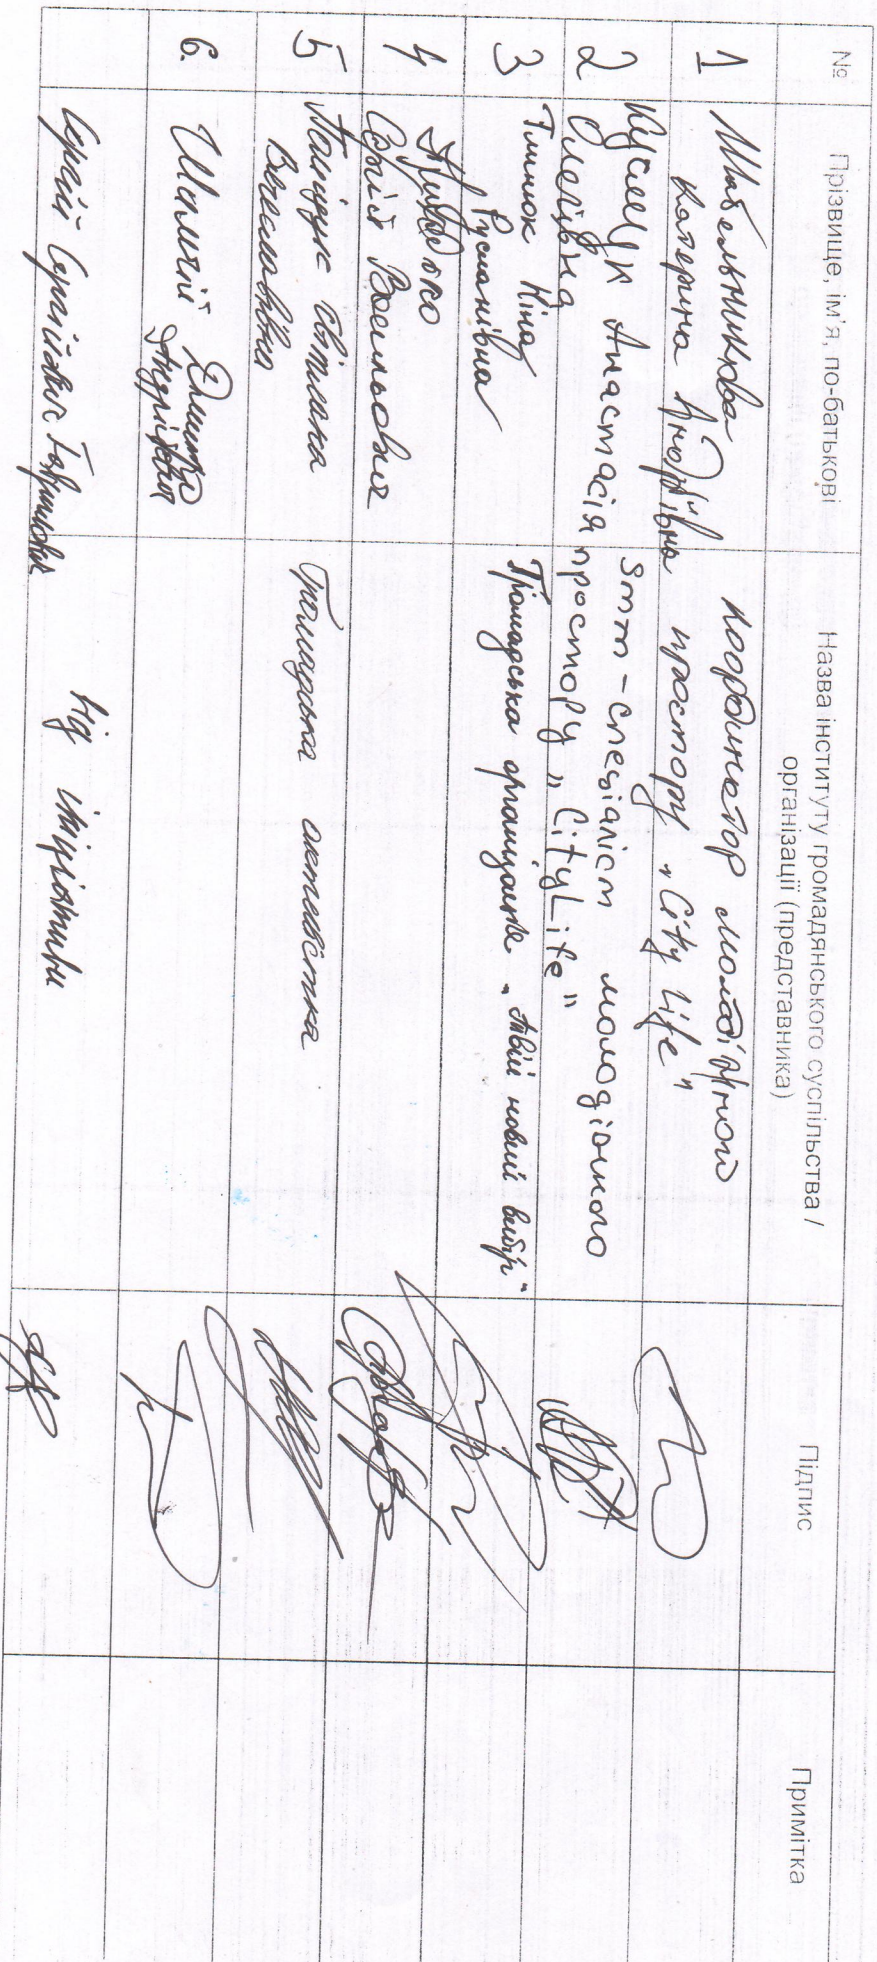 №
Прізвище, ім'я, по-батькові
Назва інституту громадянського суспільства /
організації (представника)
Підпис
Примітка
1
Катерина Андріївна
координатор молодіжного
простору „City Life"
2
Анастасія
Олегівна
smm-спеціаліст молодіжного
простору „CityLife"
3
Ніна
Русланівна
Громадська організація „Твій новий вибір"
4
Сергій Васильович
5
Поліщук Світлана
Вячеславівна
Громадська активістка
6.
Дмитро
Андрійович
Сергій Сергійович
Від ініціативи